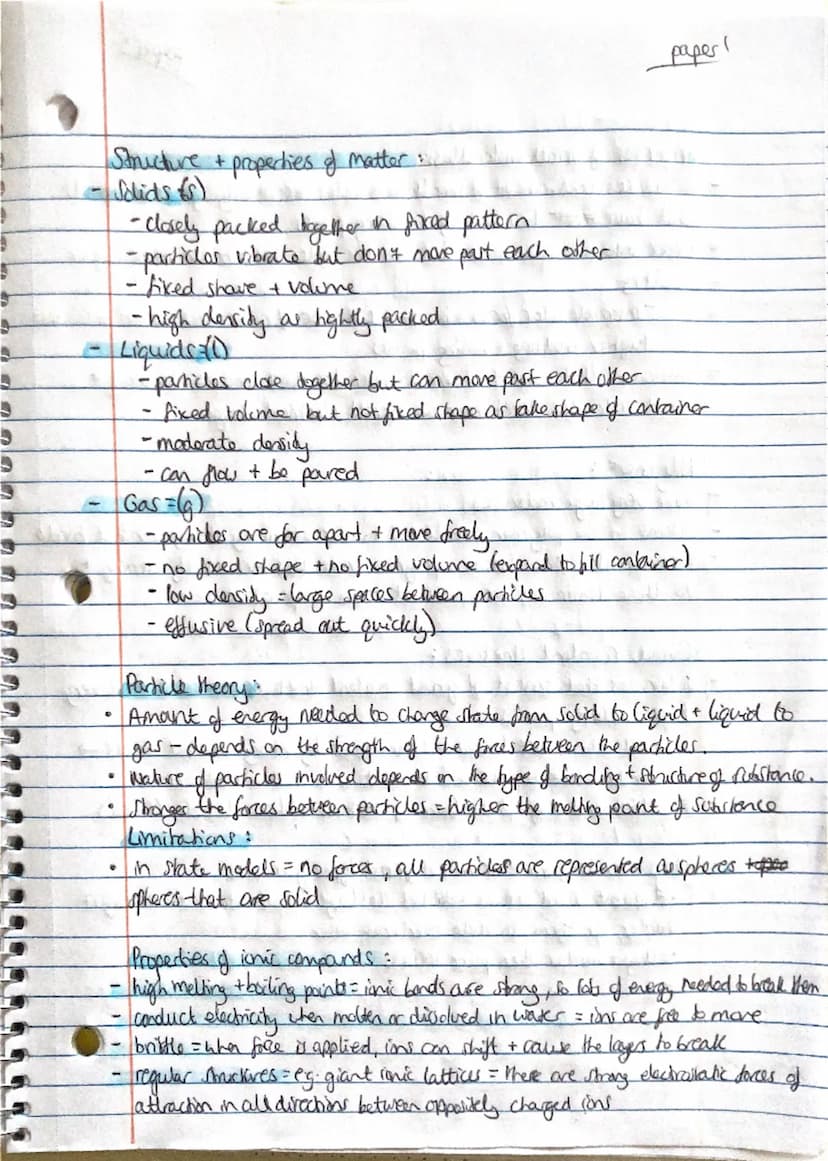 paper 1
Structure + properties of matter :
- Solids (s)
- closely packed together in fixed pattern
- particles vibrate but don't move past each other
- fixed shave + volume
- high density as tightly packed
- Liquids = (l)
- particles close together but can move past each other
- fixed volume but not fixed shape as take shape of container
- moderate density
- can flow + be poured
- Gas = (g)
- particles are far apart + move freely
- no fixed shape + no fixed volume (expand to fill container)
- low density = large spaces between particles
- effusive (spread out quickly)
Particle theory :
• Amount of energy needed to change state from solid to liquid + liquid to
gas - depends on the strength of the forces between the particles.
• Nature of particles involved depends on the type of bonding + structure of substance.
• Stronger the forces between particles = higher the melting point of substance
Limitations :
• in state models = no forces, all particles are represented as spheres
spheres that are solid
Properties of ionic compounds :
- high melting + boiling points = ionic bonds are strong, so lots of energy needed to break them
- conduct electricity when molten or dissolved in water = ions are free to move
- brittle = when force is applied, ions can shift + cause the layers to break
- regular structures = eg. giant ionic lattices = there are strong electrostatic forces of
attraction in all directions between oppositely charged ions